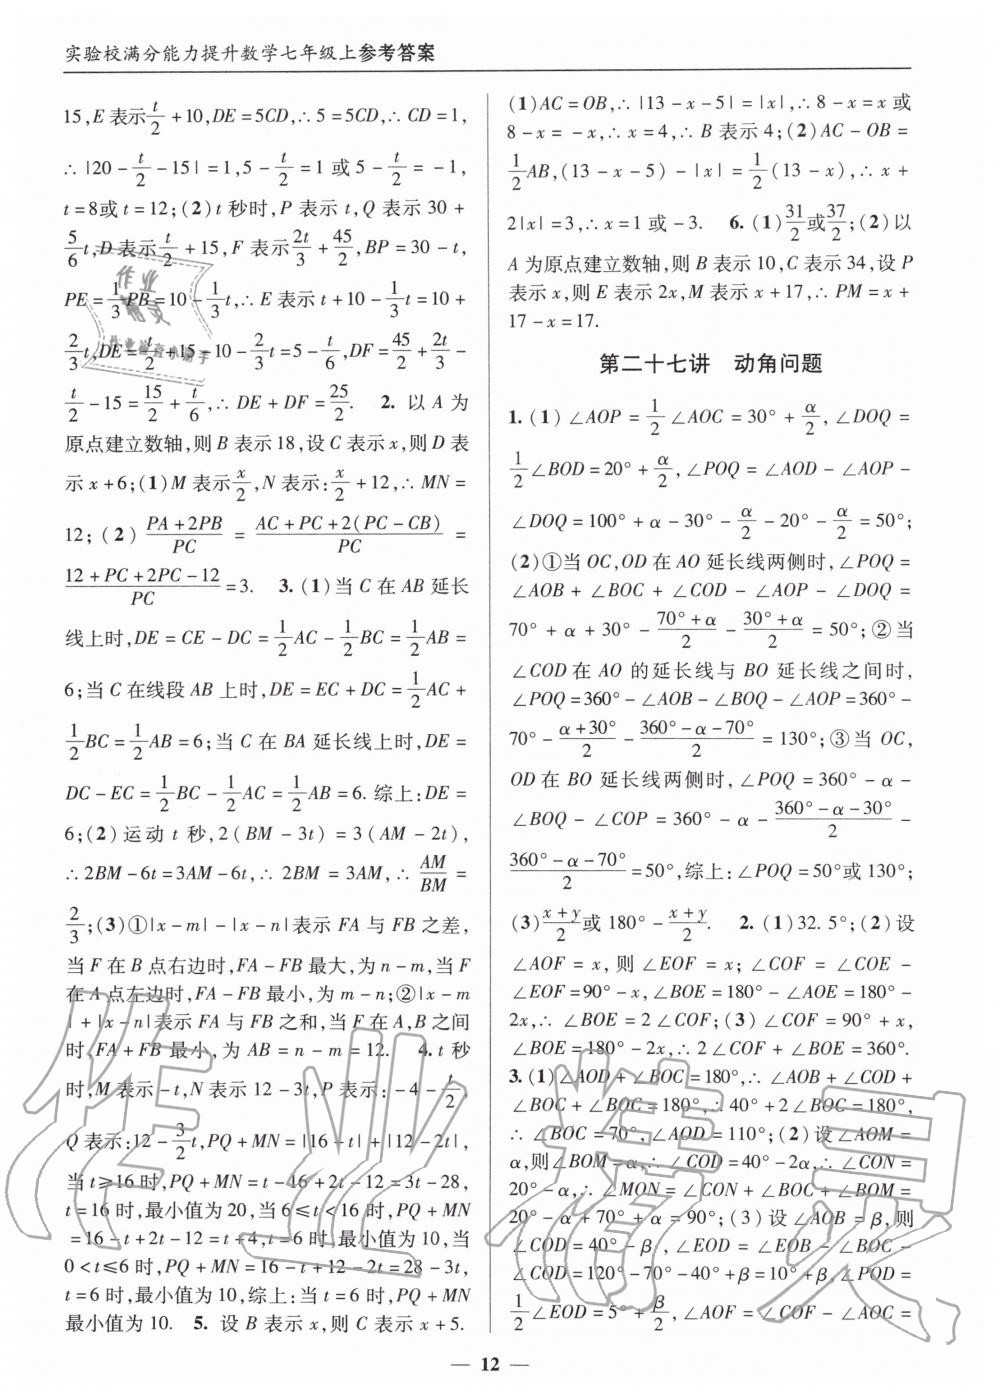 实验校满分能力提升数学七年级上参考答案
15,E表示t/2+10,DE=5CD,∴5=5CD,∴CD=1,
∴|20-t/2-15|=1,5-t/2=1或5-t/2=-1,
t=8或t=12;(2)t秒时,P表示t,Q表示30+
5/6t,D表示t/2+15,F表示2t/3+45/2,BP=30-t,
PE=1/3PB=10-1/3t,∴E表示t+10-1/3t=10+
2/3t,DE=t/2+15-10-2/3t=5-t/6,DF=45/2+2t/3-
t/2-15=15/2+t/6,∴DE+DF=25/2. 2. 以A为
原点建立数轴,则B表示18,设C表示x,则D表
示x+6;(1)M表示x/2,N表示:x/2+12,∴MN=
12;(2)(PA+2PB)/PC=(AC+PC+2(PC-CB))/PC=
(12+PC+2PC-12)/PC=3. 3. (1)当C在AB延长
线上时,DE=CE-DC=1/2AC-1/2BC=1/2AB=
6;当C在线段AB上时,DE=EC+DC=1/2AC+
1/2BC=1/2AB=6;当C在BA延长线上时,DE=
DC-EC=1/2BC-1/2AC=1/2AB=6.综上:DE=
6;(2)运动t秒,2(BM-3t)=3(AM-2t),
∴2BM-6t=3AM-6t,∴2BM=3AM,∴AM/BM=
2/3;(3)①|x-m|-|x-n|表示FA与FB之差,
当F在B点右边时,FA-FB最大,为n-m,当F
在A点左边时,FA-FB最小,为m-n;②|x-m
|+|x-n|表示FA与FB之和,当F在A,B之间
时,FA+FB最小,为AB=n-m=12. 4. t秒
时,M表示-t,N表示12-3t,P表示:-4-t/2,
Q表示:12-3/2t,PQ+MN=|16-t|+|12-2t|,
当t≥16时,PQ+MN=t-16+2t-12=3t-28,
t=16时,最小值为20,当6≤t<16时,PQ+MN
=16-t+2t-12=t+4,t=6时,最小值为10,当
0<t≤6时,PQ+MN=16-t+12-2t=28-3t,
t=6时,最小值为10,综上:当t=6时,PQ+MN
最小值为10. 5. 设B表示x,则C表示x+5.
(1)AC=OB,∴|13-x-5|=|x|,∴8-x=x或
8-x=-x,∴x=4,∴B表示4;(2)AC-OB=
1/2AB,(13-x-5)-|x|=1/2(13-x),∴x+
2|x|=3,∴x=1或-3. 6. (1)31/2或37/2;(2)以
A为原点建立数轴,则B表示10,C表示34,设P
表示x,则E表示2x,M表示x+17,∴PM=x+
17-x=17.
第二十七讲 动角问题
1. (1)∠AOP=1/2∠AOC=30°+α/2,∠DOQ=
1/2∠BOD=20°+α/2,∠POQ=∠AOD-∠AOP-
∠DOQ=100°+α-30°-α/2-20°-α/2=50°;
(2)①当OC,OD在AO延长线两侧时,∠POQ=
∠AOB+∠BOC+∠COD-∠AOP-∠DOQ=
70°+α+30°-(70°+α)/2-(30°+α)/2=50°;②当
∠COD在AO的延长线与BO延长线之间时,
∠POQ=360°-∠AOB-∠BOQ-∠AOP=360°-
70°-(α+30°)/2-(360°-α-70°)/2=130°;③当OC,
OD在BO延长线两侧时,∠POQ=360°-α-
∠BOQ-∠COP=360°-α-(360°-α-30°)/2-
(360°-α-70°)/2=50°,综上:∠POQ=50°或130°;
(3)(x+y)/2或180°-(x+y)/2. 2. (1)32.5°;(2)设
∠AOF=x,则∠EOF=x;∠COF=∠COE-
∠EOF=90°-x,∠BOE=180°-∠AOE=180°-
2x,∴∠BOE=2∠COF;(3)∠COF=90°+x,
∠BOE=180°-2x,∴2∠COF+∠BOE=360°.
3. (1)∠AOD+∠BOC=180°,∴∠AOB+∠COD+
∠BOC+∠BOC=180°,∴40°+2∠BOC=180°,
∴∠BOC=70°,∠AOD=110°;(2)设∠AOM=
α,则∠BOM=α,∴∠COD=40°-2α,∴∠CON=
20°-α,∴∠MON=∠CON+∠BOC+∠BOM=
20°-α+70°+α=90°;(3)设∠AOB=β,则
∠COD=40°-β,∠EOD=∠EOB-∠BOC-
∠COD=120°-70°-40°+β=10°+β,∠POD=
1/2∠EOD=5°+β/2,∠AOF=∠COF-∠AOC=
— 12 —
作业精灵